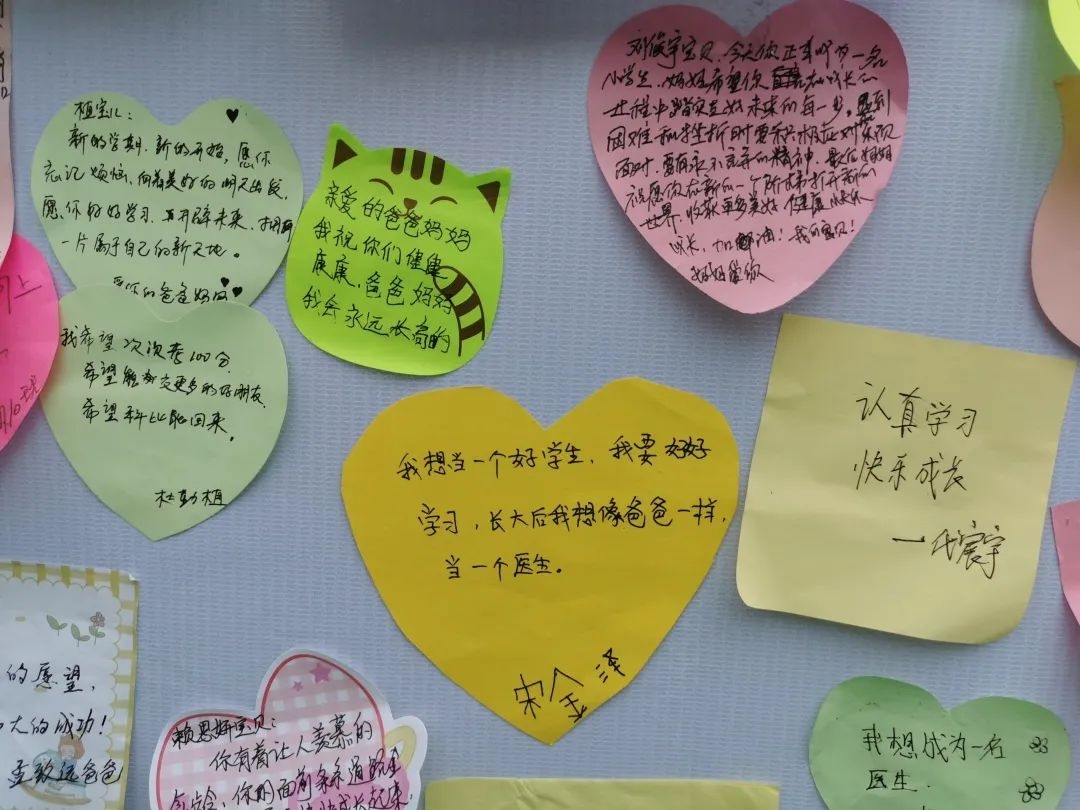 植宝儿：
新的学期，新的开始，愿你
忘记烦恼，向着美好的明天出发，
愿你好好学习，再开辟未来，
一片属于自己的新天地。
爱你的爸爸妈妈
我希望次次考100分
希望能交更多的好朋友，
希望回来。
杜勤植
亲爱的爸爸妈妈
我祝你们健健
康康，爸爸妈妈
我会永远长高的
刘俊宇宝贝，今天你正式成为一名
小学生，妈妈希望你在成长的
过程中踏实走好未来的每一步。遇到
困难和挫折时要积极应对，
面对，要有永不言弃的精神，最后妈妈
祝愿你在新的一个阶梯打开新的
世界，收获更多美好，健康快乐
成长，加油！我的宝贝！
妈妈爱你
我想当一个好学生，我要好好
学习，长大后我想像爸爸一样，
当一个医生。
宋金泽
认真学习
快乐成长
一代宸宇
的愿望，
大的成功！
孟致远爸爸
赖思妍宝贝：
你有着让人羡慕的
年龄，你的面前条条道路金
成长起来，
我想成为一名
医生